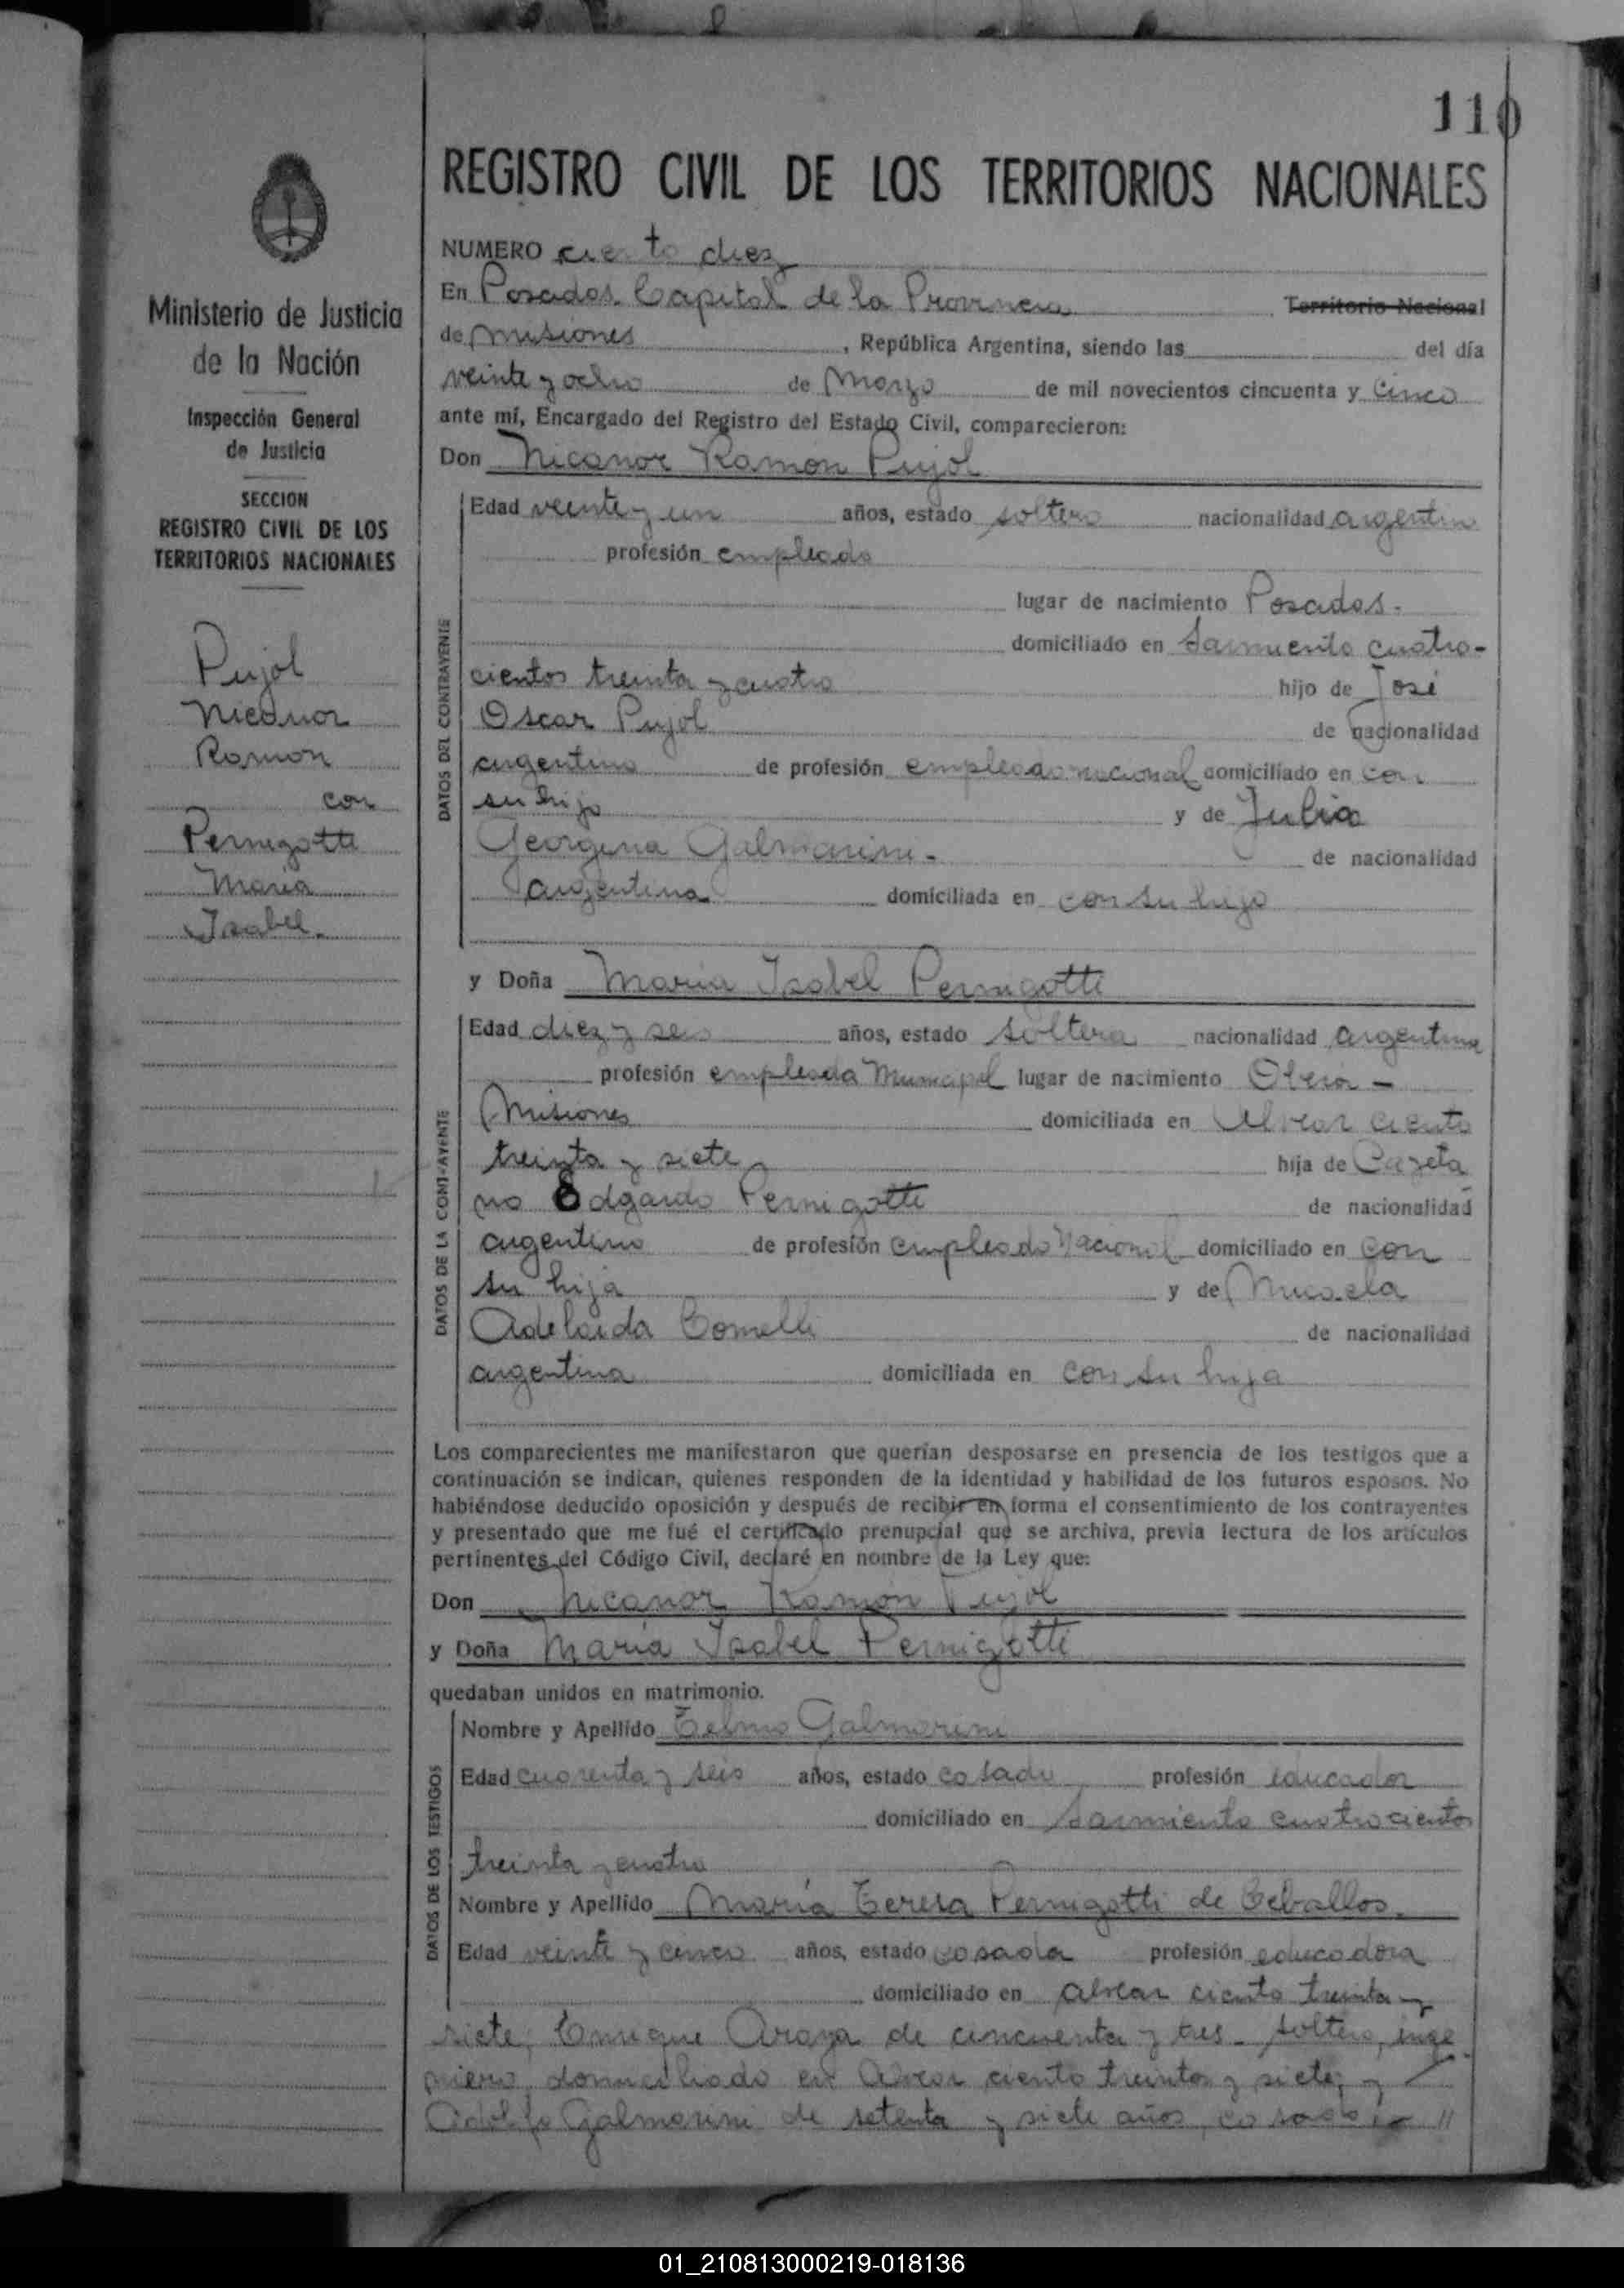 110
REGISTRO CIVIL DE LOS TERRITORIOS NACIONALES
Ministerio de Justicia
de la Nación
Inspección General
de Justicia
SECCION
REGISTRO CIVIL DE LOS
TERRITORIOS NACIONALES
Pujol
Nicanor
Ramon
con
Pernigotti
Maria
Isabel.
NUMERO ciento diez
En Posadas Capital de la Provincia Territorio Nacional
de Misiones, República Argentina, siendo las del día
veinte y ocho de Marzo de mil novecientos cincuenta y cinco
ante mí, Encargado del Registro del Estado Civil, comparecieron:
Don Nicanor Ramon Pujol
DATOS DEL CONTRAYENTE
Edad veinte y un años, estado soltero nacionalidad argentino
profesión empleado
lugar de nacimiento Posadas.
domiciliado en Sarmiento cuatro-
cientos treinta y cuatro hijo de José
Oscar Pujol de nacionalidad
argentino de profesión empleado nacional domiciliado en con
su hijo y de Julia
Georgina Galmarini. de nacionalidad
argentina domiciliada en con su hijo
y Doña Maria Isabel Pernigotti
DATOS DE LA CONTRAYENTE
Edad diez y seis años, estado soltera nacionalidad argentina
profesión empleada Municipal lugar de nacimiento Oberá -
Misiones domiciliada en Alvear ciento
treinta y siete hija de Cayeta
no Edgardo Pernigotti de nacionalidad
argentino de profesión empleado Nacional domiciliado en con
su hija y de Micaela
Adelaida Comelli de nacionalidad
argentina domiciliada en con su hija
Los comparecientes me manifestaron que querían desposarse en presencia de los testigos que a
continuación se indican, quienes responden de la identidad y habilidad de los futuros esposos. No
habiéndose deducido oposición y después de recibir en forma el consentimiento de los contrayentes
y presentado que me fué el certificado prenupcial que se archiva, previa lectura de los artículos
pertinentes del Código Civil, declaré en nombre de la Ley que:
Don Nicanor Ramón Pujol
y Doña María Isabel Pernigotti
quedaban unidos en matrimonio.
DATOS DE LOS TESTIGOS
Nombre y Apellido Telmo Galmarini
Edad cuarenta y seis años, estado casado profesión educador
domiciliado en Sarmiento cuatrocientos
treinta y cuatro
Nombre y Apellido María Teresa Pernigotti de Ceballos.
Edad veinte y cinco años, estado casada profesión educadora
domiciliado en Alvear ciento treinta y
siete, Enrique Araya de cincuenta y tres - soltero, inge
niero, domiciliado en Alvear ciento treinta y siete, y
Adolfo Galmarini de setenta y siete años, casado
01_210813000219-018136